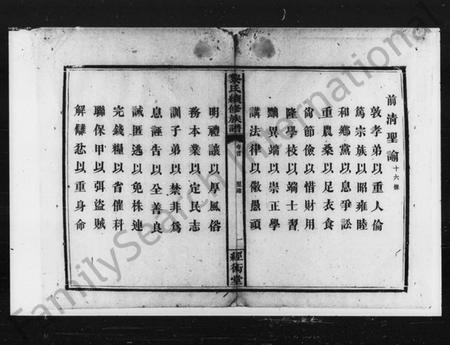 前清聖諭 十六條
敦孝弟以重人倫
篤宗族以昭雍睦
和鄉黨以息爭訟
重農桑以足衣食
尚節儉以惜財用
隆學校以端士習
黜異端以崇正學
講法律以儆愚頑
氏續修族譜
經術堂
明禮讓以厚風俗
務本業以定民志
訓子弟以禁非為
息誣告以全善良
誡匿逃以免株連
完錢糧以省催科
聯保甲以弭盜賊
解讎忿以重身命
FamilySearch International